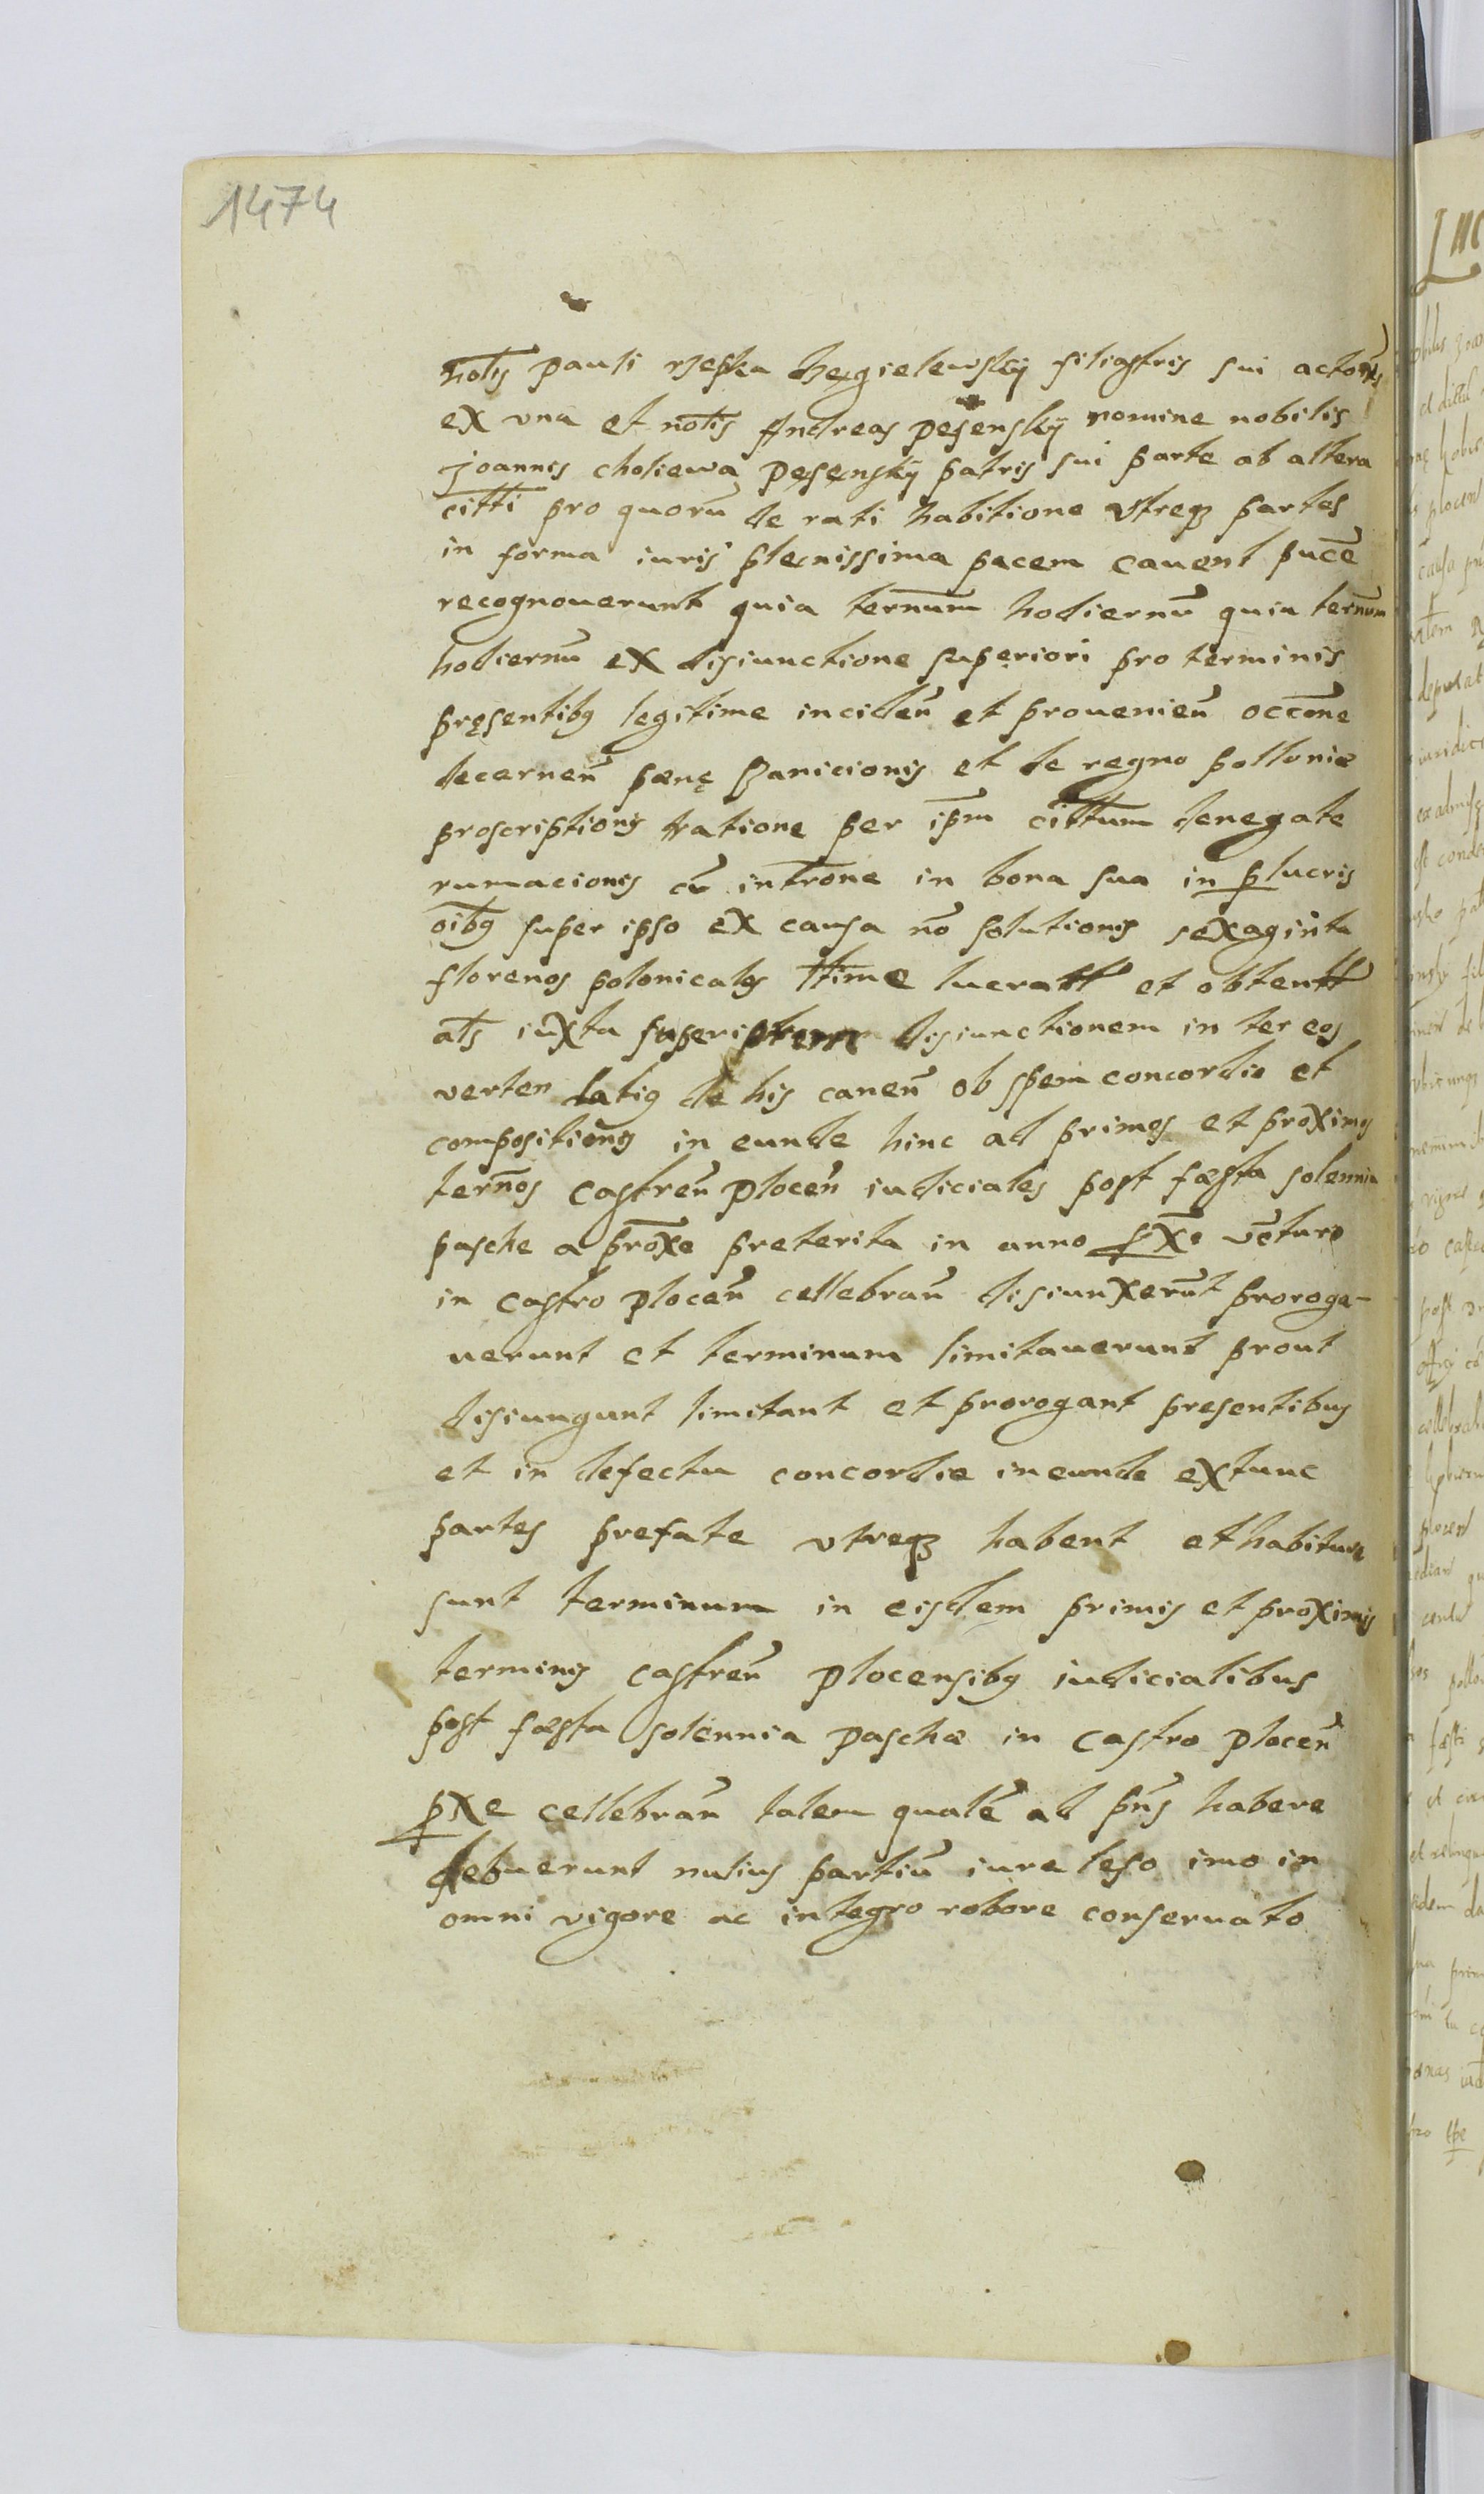 1474
nolis pauli rzepka bęgielewskij filiastris sui actoris
ex vna et notis Andreas pesenskij nomine nobilis
Joannis choliewa pęsęnskij patris sui parte ab altera
citti pro quorū de rati habitione vtreqz partes
in forma iuris plecnissima pacem cauent pnce
recognouerunt quia ternum hodiernū quia ternum
hodiernū ex disiunctione superiori pro terminis
pręsentibq legitime inciden et prouenien occone
decernen pænę banicionis et de regno polloniæ
proscriptionis ratione per ipm cittum denegate
rumacionis cū introne in bona sua in p lucris
oibq super ipso ex causa no solutionis sexaginta
florenos polonicales ltime lucratt et obtentt
als iuxta disiunctionem in ter eos
verten latiq de his canen ob spem concordie et
compositionis in eunde hinc ad primos et proximos
ternos castren plocen iudiciales post fæsta solennia
pasche a proxe preterita in anno pxe veturo
in castro plocen cellebran disiunxerunt proroga-
uerunt et terminum limitauerunt prout
disiungunt limitant et prorogant presentibus
et in defectu concordie ineunde extunc
partes prefate vtreqz habent et habiture
sunt terminum in eisdem primis et proximis
terminis castren plocensibq iudicialibus
post fæsta solennia paschæ in castro plocen
pxe cellebran talem qualē ad pns habere
debuerunt nulius partiū iure leso imo in
omni vigore ac integro robore conseruato